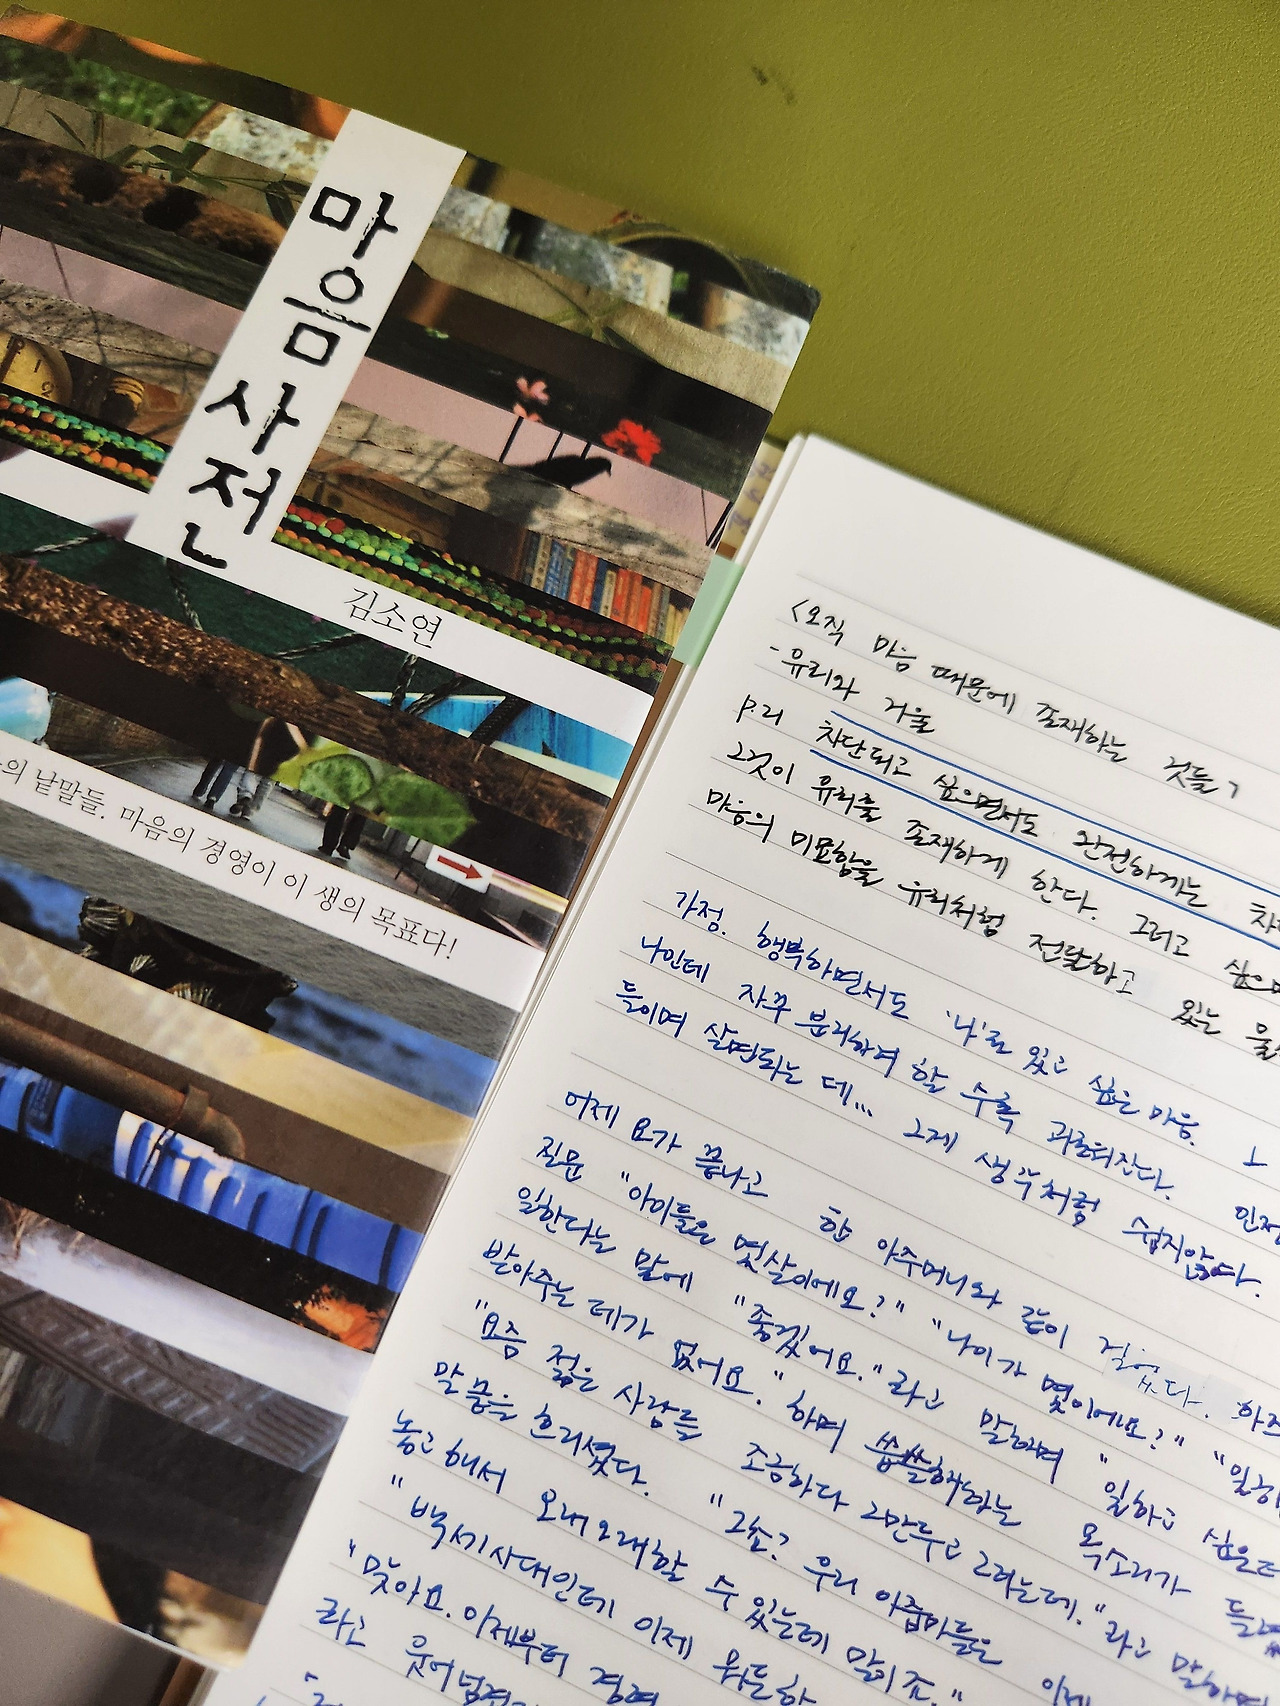 마음사전
김소연
의 낱말들. 마음의 경영이 이 생의 목표다!
<오직 마음 때문에 존재하는 것들>
- 유리와 거울
p.21 차단되고 싶으면서도 완전하게는
그것이 유리를 존재하게 한다. 그러고 싶으
마음의 미묘함을 유리처럼 전달하고 있는
가정. 행복하면서도 '나'로 있고 싶은 마음.
나인데 자꾸 분리하려 할 수록 괴로워진다.
들이며 살면되는 데... 그게 생각처럼 쉽지않다.
어제 요가 끝나고 한 아주머니와 같이 걸었다.
질문 "아이들은 몇살이에요?" "나이가 몇이에요?"
일한다는 말에 "좋겠어요." 라고 말하며 "일하고 싶은데
받아주는 데가 없어요." 하며 씁쓸해하는 목소리가
"요즘 젊은 사람들 조금하다 그만두고 그러는데." 라고 말하며
말 끝을 흐리셨다. "그죠? 우리 아줌마들은 이제
놓고 해서 오래오래할 수 있는데 말이죠."
"백세시대인데 이제 뭐든 하
"맞아요. 이제부터 경력
라고 웃어넘겼